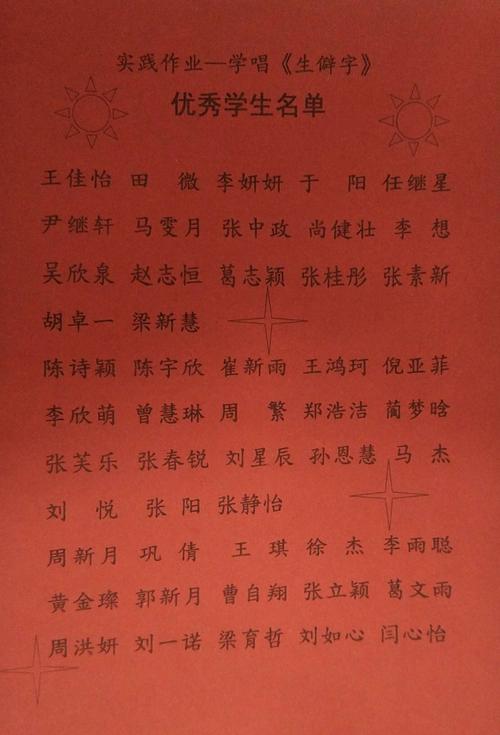 实践作业—学唱《生僻字》
优秀学生名单
王佳怡 田 微 李妍妍 于 阳 任继星
尹继轩 马雯月 张中政 尚健壮 李 想
吴欣泉 赵志恒 葛志颖 张桂彤 张素新
胡卓一 梁新慧
陈诗颖 陈宇欣 崔新雨 王鸿珂 倪亚菲
李欣萌 曾慧琳 周 繁 郑浩洁 蔺梦晗
张芙乐 张春锐 刘星辰 孙恩慧 马 杰
刘 悦 张 阳 张静怡
周新月 巩 倩 王 琪 徐 杰 李雨聪
黄金璨 郭新月 曹自翔 张立颖 葛文雨
周洪妍 刘一诺 梁育哲 刘如心 闫心怡